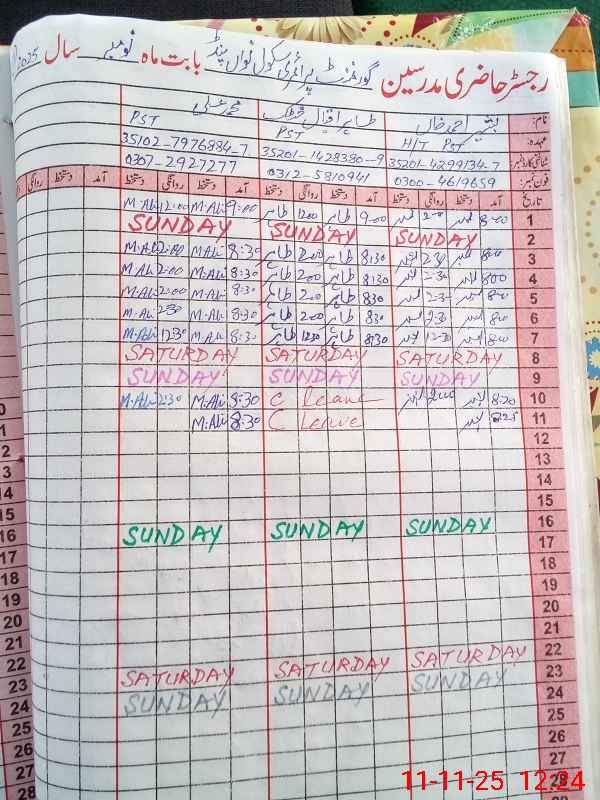 رجسٹر حاضری مدرسین گورنمنٹ پرائمری سکول نواں پنڈ بابت ماہ نومبر سال 2025
نام: بشیر احمد خان طاہر اقبال خٹک محمد علی
عہدہ: H/T PST PST PST
شناختی کارڈ نمبر 35201-4299134-7 35201-1428380-9 35102-7976884-7
فون نمبر: 0300-4619659 0312-5810941 0307-2927277
تاریخ آمد دستخط روانگی دستخط آمد دستخط روانگی دستخط آمد دستخط روانگی دستخط آمد دستخط روانگی
1 8:00 9:00 طاہر 1200 طاہر 9:00 M.Ali 12:00 M.Ali
2 SUNDAY SUNDAY SUNDAY
3 8:00 2:30 8:30 طاہر 200 طاہر 8:30 M.Ali 2:00 M.Ali
4 8:00 2:30 8:30 طاہر 200 طاہر 8:30 M.Ali 2:00 M.Ali
5 8:00 2:30 830 طاہر 200 طاہر 8:30 M.Ali 2:00 M.Ali
6 8:00 2:30 830 طاہر 200 طاہر 8:30 M.Ali 2:30 M.Ali
7 8:00 12:30 8:30 طاہر 1230 طاہر 8:30 M.Ali 12:30 M.Ali
8 SATURDAY SATURDAY SATURDAY
9 SUNDAY SUNDAY SUNDAY
10 8:20 C leave 8:30 M.Ali 2:30 M.Ali
11 8:25 C Leave 8:30 M.Ali
12
13
14
15
16 SUNDAY SUNDAY SUNDAY
17
18
19
20
21
22 SATURDAY SATURDAY SATURDAY
23 SUNDAY SUNDAY SUNDAY
24
25
26
27
28
11-11-25 12:24